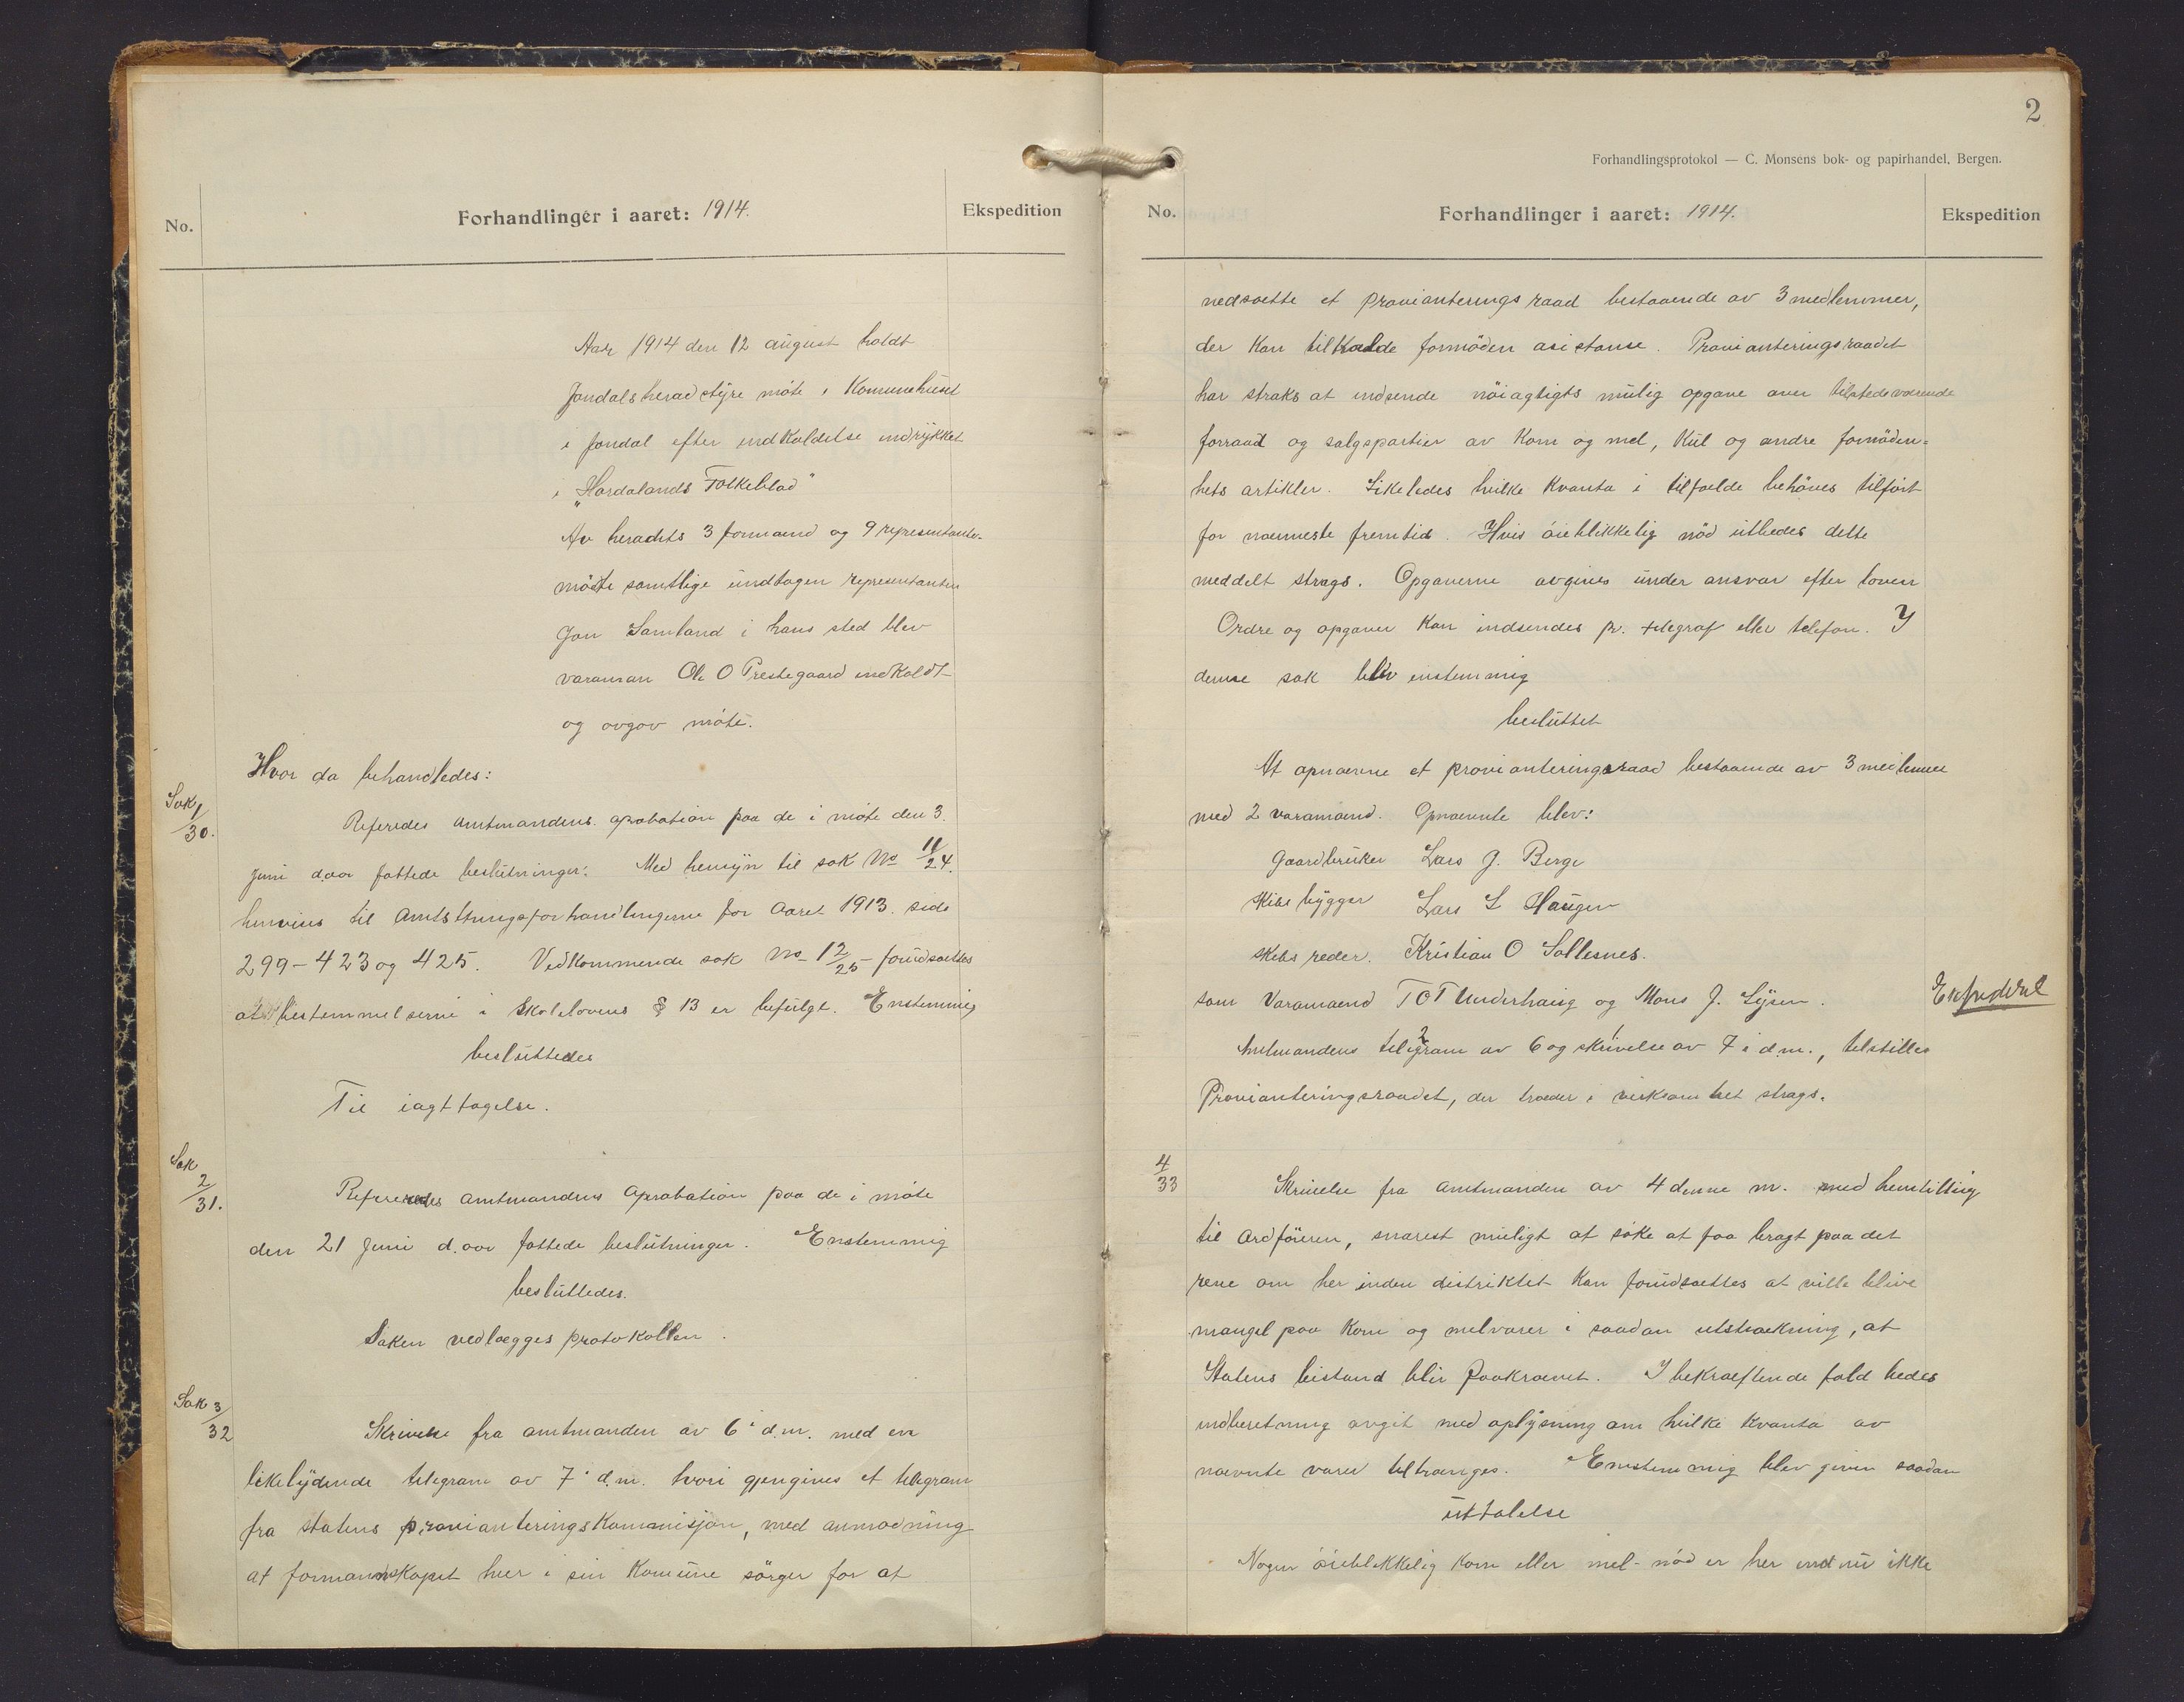 No.
Forhandlinger i aaret: 1914.
Ekspedition
Aar 1914 den 12 august holdt
Jondals heradstyre møte i Komunehuset
i Jondal efter indkaldelse indrykket
i „Hordalands Folkeblad"
Av heradets 3 formænd og 9 representanter
møtte samtlige undtagen representanten
Jon Samland i hans sted blev
varaman Ole O Prestegaard indkaldt
og avgav møte.
Hvor da behandledes:
Sak 1/30.
Referedes amtmandens aprobation paa de i møte den 3.
juni d.aar fattede beslutninger: Med hensyn til sak No 11/24.
henvises til Amtstingsforhandlingerne for Aaret 1913. side
299 - 423 og 425. Vedkommende sak No 12/25 forudsættes
at bestemmelserne i Skolelovens § 13 er befulgt. Enstemmig
besluttedes
Til iagttagelse.
Sak 2/31.
Refereredes amtmandens Aprobation paa de i møte
den 21 juni d.aar fattede beslutninger. Enstemmig
besluttedes.
Saken vedlægges protokollen.
Sak 3/32
Skrivelse fra amtmanden av 6 i d.m. med en
likelydende telegram av 7 i d.m. hvori gjengives et telegram
fra statens provianteringskommisjon, med anmodning
at formandskapet hver i sin Komune sørger for at
2
Forhandlingsprotokol — C. Monsens bok- og papirhandel, Bergen.
No.
Forhandlinger i aaret: 1914.
Ekspedition
nedsætte et provianteringsraad bestaaende av 3 medlemmer,
der kan tilkalde fornøden asistanse. Provianteringsraadet
har straks at indsende nøiagtigts mulig opgave over tilstedeværende
forraad og salgspartier av korn og mel, kul og andre fornøden=
hets artikler. Likeledes hvilke kvanta i tilfælde behøves tilført
for nærmeste fremtid. Hvis øieblikkelig nød utbedes dette
meddelt strags. Opgaverne avgives under ansvar efter loven
Ordre og opgaver kan indsendes pr. telegraf eller telefon. I
denne sak blev enstemmig
besluttet
At opnævne et provianteringsraad bestaaende av 3 medlemmer
med 2 varamænd. Opnævnte blev:
Gaardbruker Lars J. Berge
Skibsbygger Lars L Haugen
Skibsreder. Kristian O Sollesnes.
som Varamænd T O T Underhaug og Mons J. Lysen.
Ekspedert
Amtmandens telegram av 6 og skrivelse av 7 i d.m., tilstilles
Provianteringsraadet, der træder i virksomhet strags.
4/33
Skrivelse fra amtmanden av 4 denne m. med henstilling
til ordføreren, snarest muligt at søke at faa bragt paa det
rene om her inden distriktet kan forudsættes at ville blive
mangel paa korn og melvarer i saadan utstrækning, at
Statens bistand blir paakrævet. I bekræftende fald bedes
indberetning avgit med oplysning om hvilke kvanta av
nævnte varer tiltrænges. Enstemmig blev given saadan
uttalelse
Nogen øieblikkelig korn eller mel-nød er her endnu ikke